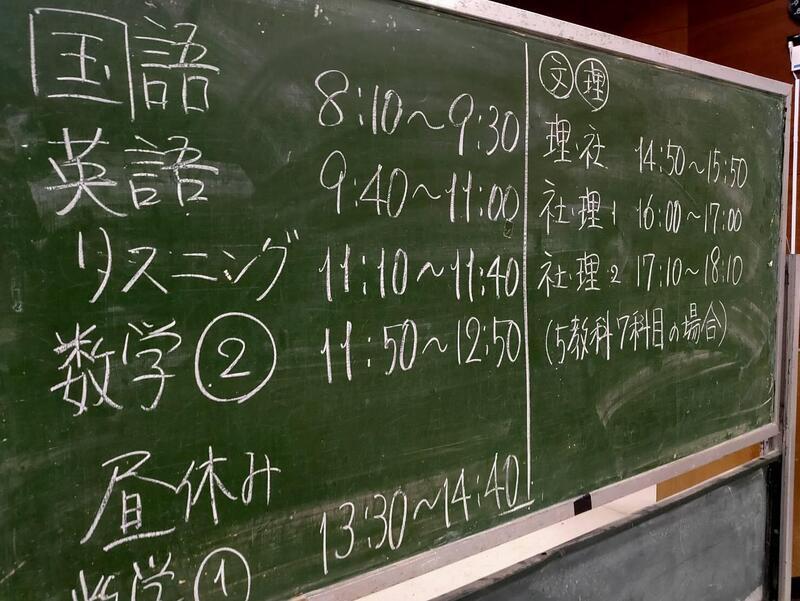 国語 8:10〜9:30
英語 9:40〜11:00
リスニング 11:10〜11:40
数学② 11:50〜12:50
昼休み
数学① 13:30〜14:40
㊛文 理
理・社 14:50〜15:50
社・理1 16:00〜17:00
社・理2 17:10〜18:10
(5教科7科目の場合)